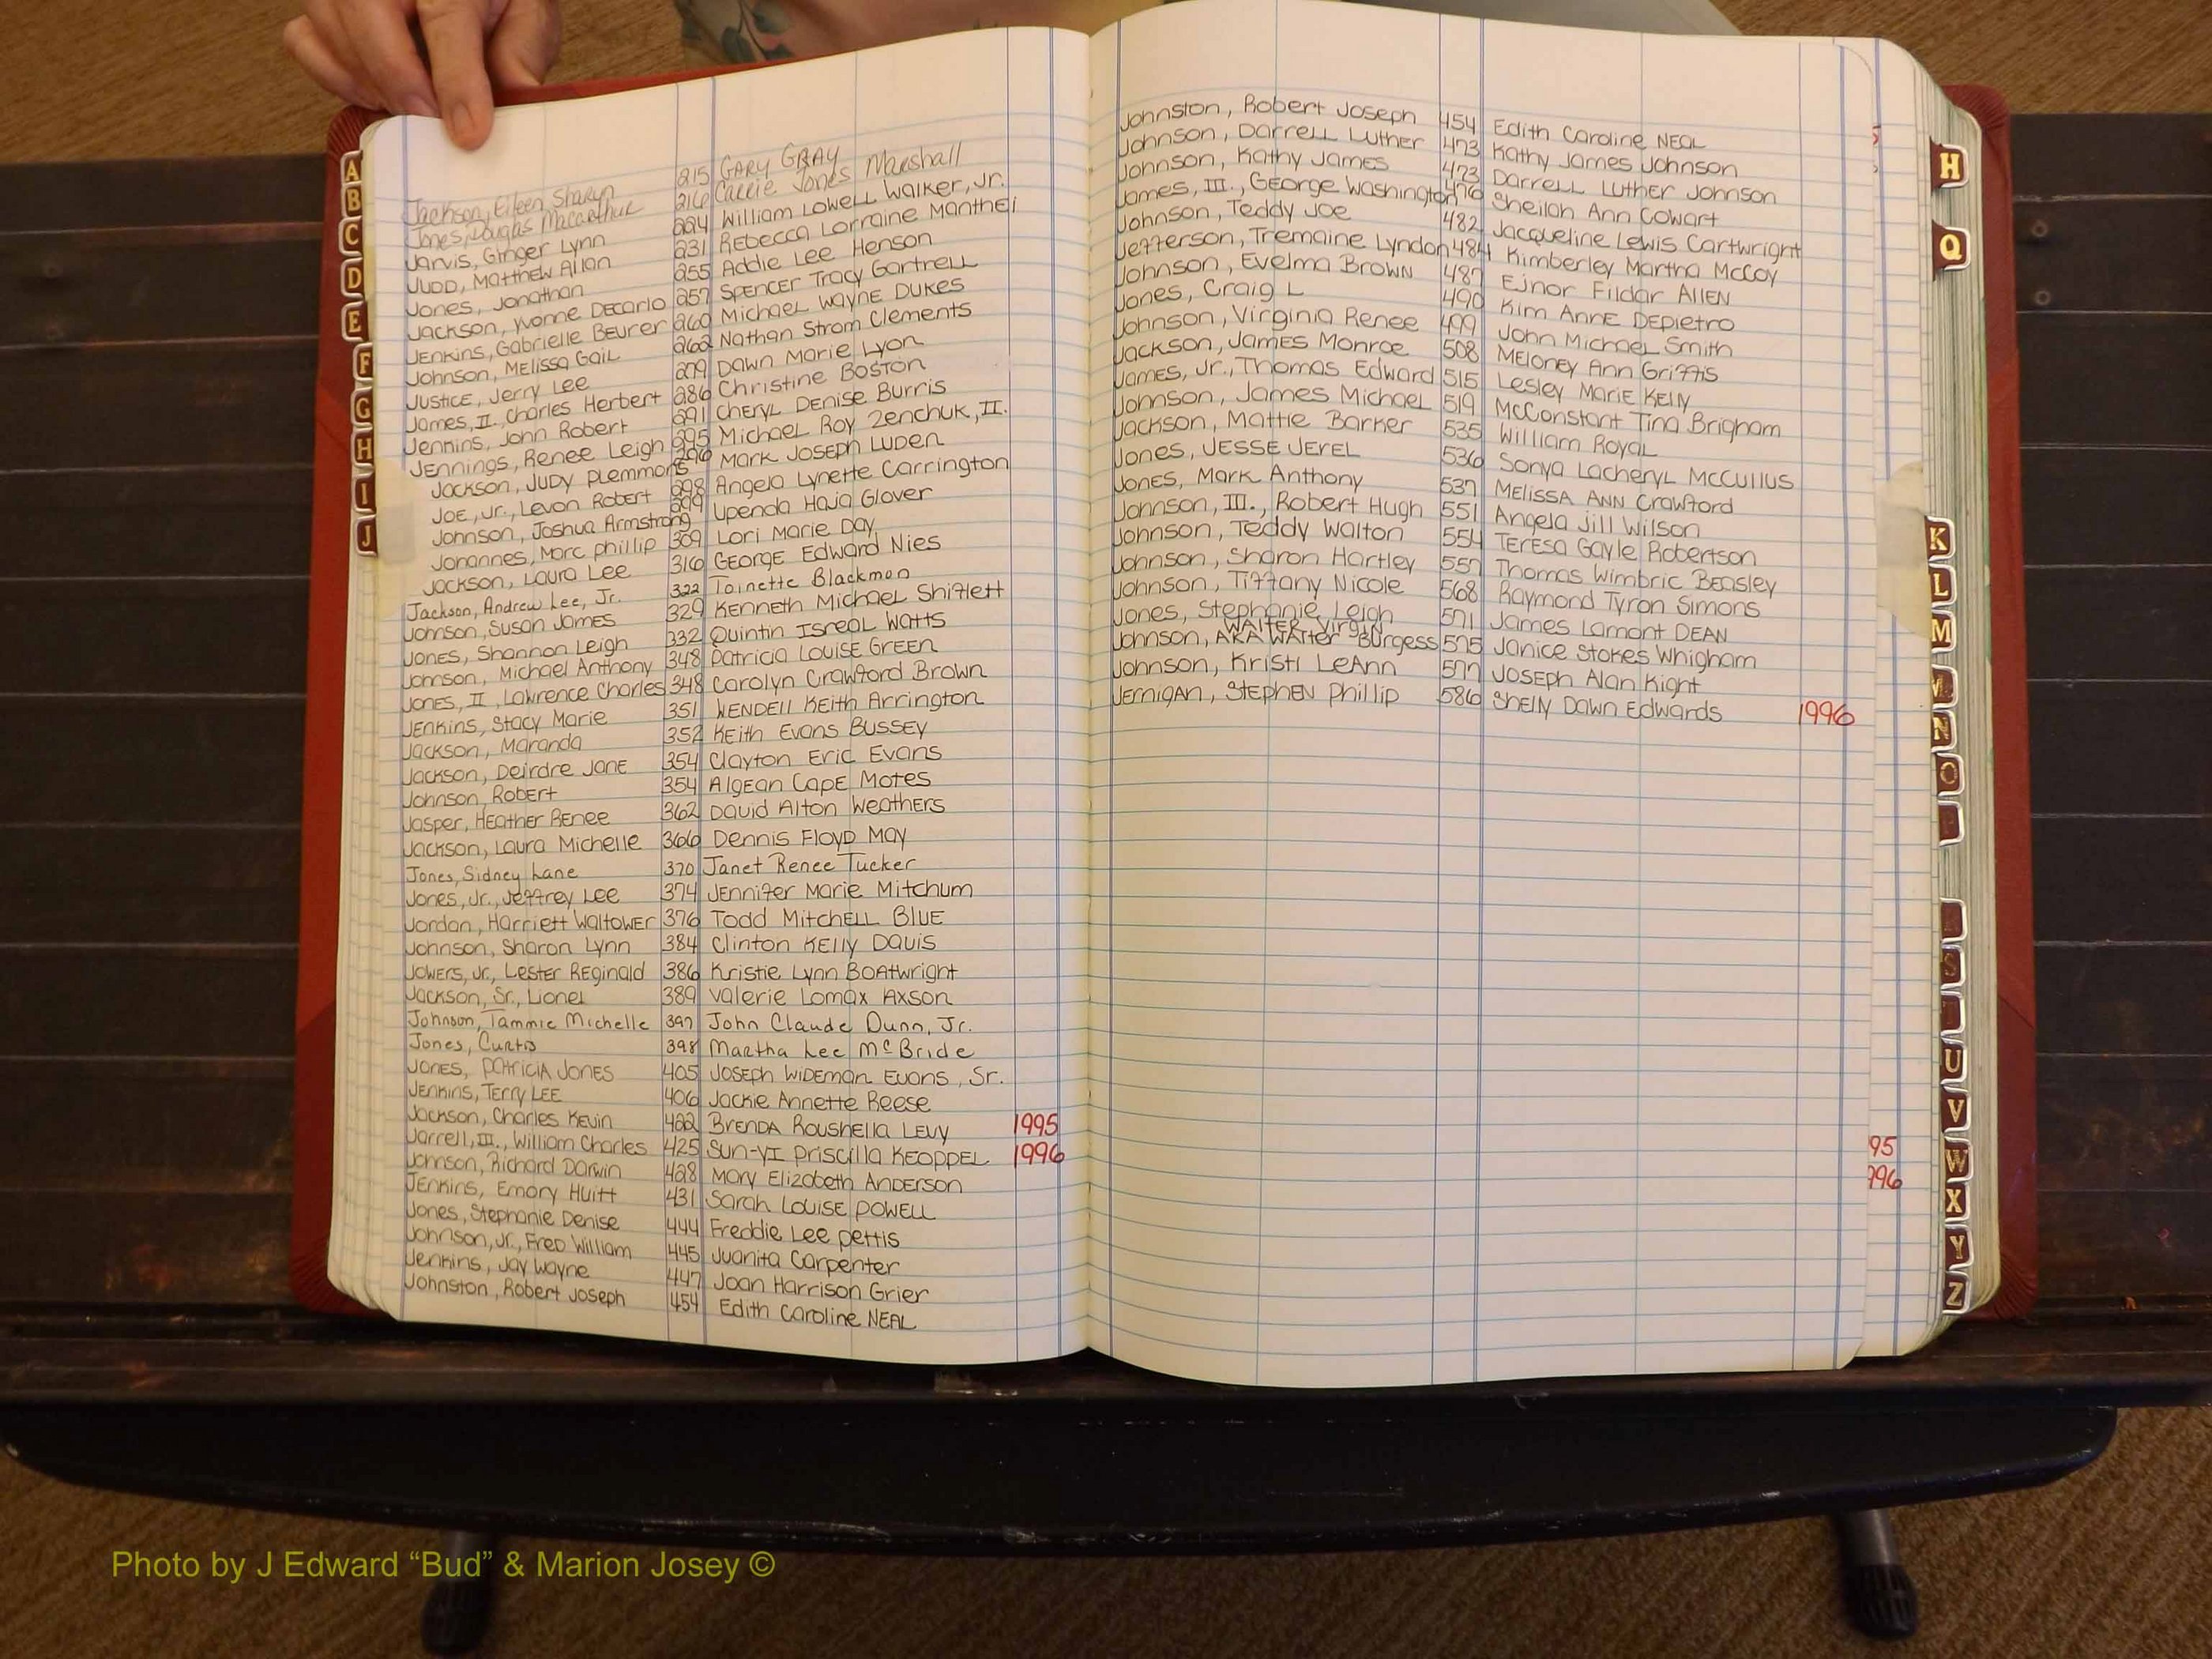 Jackson, Eileen Sharyn 215 GARY GRAY
Jones, Douglas Macarthur 216 Carrie Jones Marshall
Jarvis, Ginger Lynn 224 William Lowell Walker, Jr.
JUDD, Matthew Allan 231 Rebecca Lorraine Manthei
Jones, Jonathan 255 Addie Lee Henson
Jackson, Yvonne Decarlo 257 SPENCER Tracy Gartrell
JENKINS, Gabrielle Beurer 260 Michael Wayne DUKES
Johnson, MELISSA GAIL 262 Nathan Strom Clements
JUSTICE, Jerry Lee 279 Dawn Marie Lyon
James, II., Charles Herbert 286 Christine BOSTON
Jennins, John Robert 291 CHERYL DENISE Burris
JENNINGS, Renee Leigh 295 Michael Roy Zenchuk, II.
Jackson, JUDY PLEMMONS 296 Mark JOSEPH LUDEN
JOE, Jr., Levon Robert 298 Angela Lynette Carrington
Johnson, Joshua Armstrong 299 Upenda Haja Glover
Johannes, Marc phillip 309 Lori Marie Day
Jackson, Laura Lee 316 GEORGE Edward Nies
Jackson, Andrew Lee, Jr. 322 Toinette Blackmon
Johnson, Susan James 329 KENNETH Michael Shiflett
Jones, Shannon Leigh 332 Quintin ISREAL Watts
Johnson, Michael Anthony 348 Patricia LOUISE GREEN
JONES, II, Lawrence Charles 348 Carolyn Crawford Brown
JENKINS, Stacy Marie 351 WENDELL KEITH Arrington
Jackson, Maranda 352 KEITH Evans BUSSEY
Jackson, Deirdre JANE 354 Clayton Eric Evans
Johnson, Robert 354 Algean CAPE MOTES
Jasper, HEATHER RENEE 362 David Alton WEATHERS
Jackson, Laura Michelle 366 Dennis FLOYD MAY
Jones, Sidney Lane 370 Janet Renee Tucker
Jones, Jr., Jeffrey LEE 374 JENNIFER Marie Mitchum
Jordan, Harriett Waltower 376 Todd MITCHELL BLUE
Johnson, Sharon Lynn 384 Clinton KELLY DAVIS
JOWERS, Jr., LESTER REginald 386 Kristie Lynn BOATWright
Jackson, Sr., Lionel 389 Valerie Lomax AXSON
Johnson, Tammie Michelle 397 John Claude Dunn, Jr.
Jones, Curtis 398 Martha Lee McBride
JONES, PATRICIA JONES 405 JOSEPH WIDEMAN Evans, Sr.
JENKINS, TERRY LEE 406 Jackie Annette Reese
Jackson, Charles Kevin 422 BRENDA Roushella LEVY 1995
Jarrell, III., William Charles 425 SUN-YI Priscilla KEOPPEL 1996
Johnson, Richard Darwin 428 Mary Elizabeth ANDERSON
JENKINS, Emory Huitt 431 Sarah LOUISE POWELL
Jones, Stephanie Denise 444 Freddie Lee pettis
Johnson, Jr., FRED William 445 Juanita Carpenter
Jenkins, Jay Wayne 447 Joan Harrison Grier
Johnston, Robert Joseph 454 Edith Caroline NEAL
Johnston, Robert Joseph 454 Edith Caroline NEAL
Johnson, Darrell Luther 473 Kathy James Johnson
Johnson, Kathy James 473 Darrell Luther Johnson
James, III., George Washington 476 Sheilah Ann Cowart
Johnson, Teddy Joe 482 Jacqueline Lewis Cartwright
Jefferson, Tremaine Lyndon 484 Kimberley Martha McCoy
Johnson, Evelma BROWN 487 Ejnor Fildar ALLEN
Jones, Craig L 490 Kim ANNE DEPietro
Johnson, Virginia Renee 499 John Michael Smith
Jackson, James Monroe 508 MELONEY Ann Griffis
James, Jr., Thomas Edward 515 Lesley MARIE KELLY
Johnson, James Michael 519 McConstant Tina Brigham
Jackson, Mattie Barker 535 William ROYAL
Jones, JESSE JEREL 536 Sonya Lacheryl McCullus
Jones, Mark Anthony 537 MELISSA ANN Crawford
Johnson, III., Robert Hugh 551 Angela Jill Wilson
Johnson, Teddy Walton 554 TERESA Gayle Robertson
Johnson, Sharon Hartley 557 Thomas Wimbric Beasley
Johnson, Tiffany Nicole 568 Raymond Tyron Simons
Jones, Stephanie Leigh 571 James Lamont DEAN
WALTER Virgin
Johnson, AKA WALTER Burgess 575 Janice Stokes Whigham
Johnson, Kristi LeAnn 577 JOSEPH Alan Kight
JERNIGAN, STEPHEN Phillip 586 SHELLY Dawn Edwards 1996
95
996
A
B
C
D
E
F
G
H
I
J
H
Q
K
L
M
N
O
S
U
V
W
X
Y
Z
Photo by J Edward “Bud” & Marion Josey ©